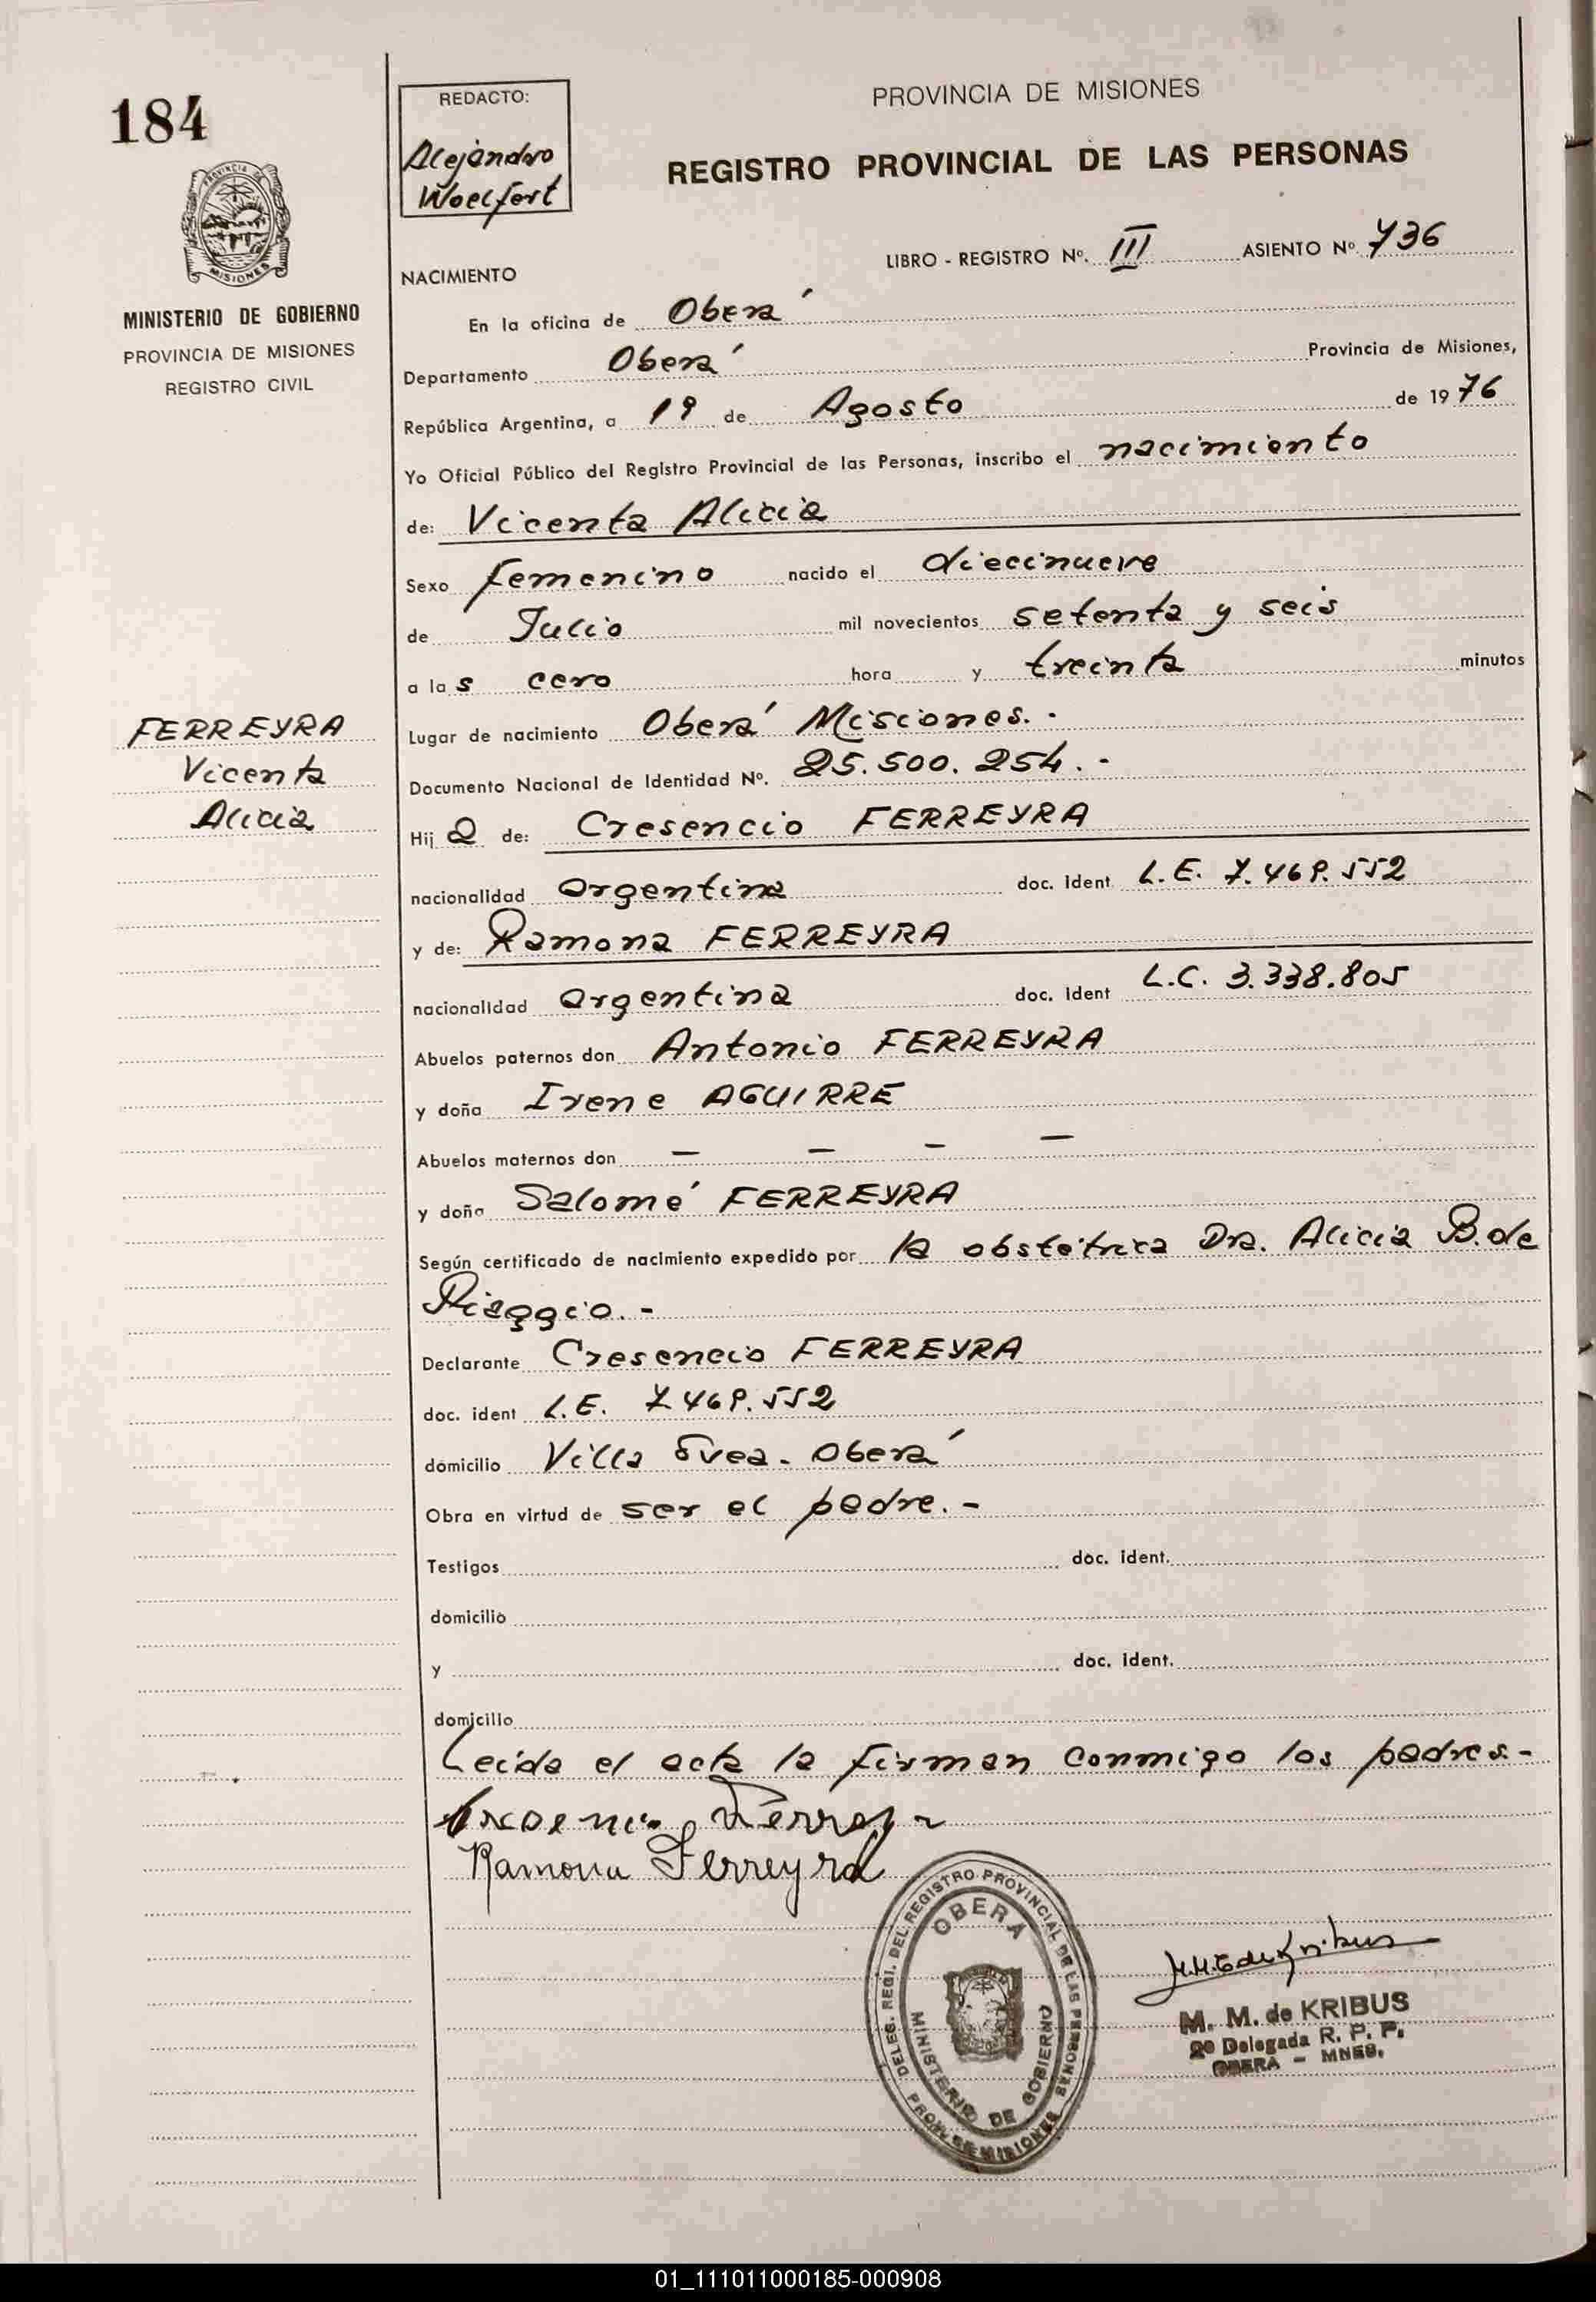 184
REDACTO:
Alejandro
Woelfert
PROVINCIA DE MISIONES
REGISTRO PROVINCIAL DE LAS PERSONAS
PROVINCIA DE
MISIONES
MINISTERIO DE GOBIERNO
PROVINCIA DE MISIONES
REGISTRO CIVIL
LIBRO - REGISTRO Nº. III ASIENTO Nº. 736
NACIMIENTO
En la oficina de Oberá
Departamento Oberá Provincia de Misiones,
República Argentina, a de Agosto de 1976
Yo Oficial Público del Registro Provincial de las Personas, inscribo el nacimiento
de: Vicenta Alicia
Sexo femenino nacido el diecinueve
de Julio mil novecientos setenta y seis
a las cero hora y treinta minutos
Lugar de nacimiento Oberá Misiones.-
Documento Nacional de Identidad Nº. 25.500.254.-
FERREYRA
Vicenta
Alicia
Hija de: Cresencio FERREYRA
nacionalidad argentina doc. ident L.E. 7.469.552
y de: Ramona FERREYRA
nacionalidad argentina doc. ident L.C. 3.338.805
Abuelos paternos don Antonio FERREYRA
y doña Irene AGUIRRE
Abuelos maternos don — — — —
y doña Salomé FERREYRA
Según certificado de nacimiento expedido por la obstétrica Dra. Alicia B. de
Piaggio.-
Declarante Cresencio FERREYRA
doc. ident L.E. 7.469.552
domicilio Villa Svea - Oberá
Obra en virtud de ser el padre.-
Testigos doc. ident.
domicilio
y doc. ident.
domicilio
Leida el acta la firman conmigo los padres.-
Ferreyra
Ramona Ferreyra
DELEG. REGI. DEL REGISTRO PROVINCIAL DE LAS PERSONAS
OBERA
MINISTERIO DE GOBIERNO
PROV. DE MISIONES
M.M. de Kribus
M. M. de KRIBUS
2º Delegada R. P. P.
OBERA - MNES.
01_111011000185-000908